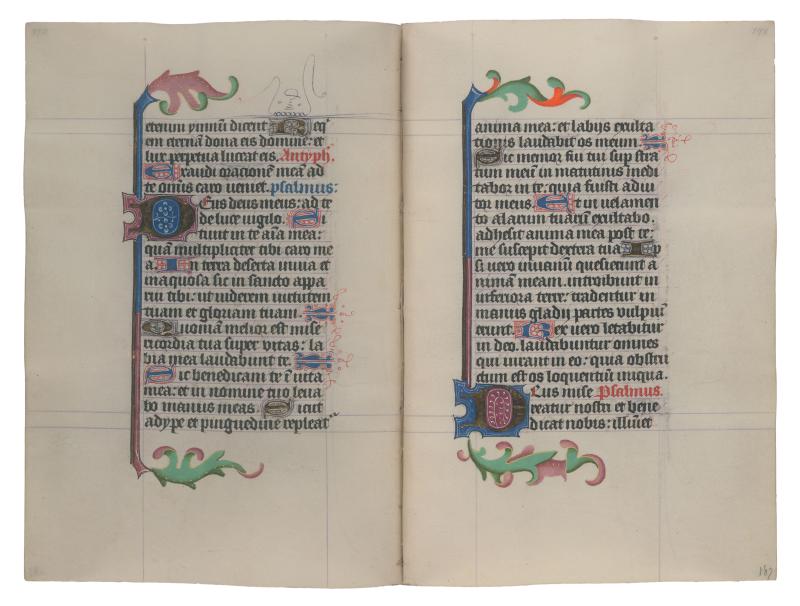 eternū yinnū dicent Req̄
em eternā dona eis domine: et
lux perpetua luceat eis. Antyph̄.
Exaudi oracionē meā ad
te omīs caro veniet. psalmus:
Deus deus meus: ad te
de luce vigilo. Si
tiuit in te aīa mea:
quā multipliciter tibi caro me
a. In terra deserta inuia et
inaquosa sic in sancto appa
rui tibi: ut viderem virtutem
tuam et gloriam tuam.
Quoniam melior est mise
ricordia tua super vitas: la
bia mea laudabunt te.
Sic benedicam te ī vita
mea: et in nomine tuo leua
bo manus meas. Sicut
adype et pinguedine repleat᷑
anima mea: et labijs exulta
tionis laudabit os meum.
Sic memor fui tui sup stra
tum meū in matutinis medi
tabor in te: quia fuisti adiu
tor meus. Et in uelamen
to alarum tuarū exultabo.
adhesit anima mea post te:
me suscepit dextera tua Ip
si uero inuanū quesierunt a
nimam meam. introibunt in
inferiora terre: tradentur in
manus gladij partes vulpiū
erunt. Rex uero letabitur
in deo. laudabuntur omnes
qui iurant in eo: quia obstru
ctum est os loquentiū iniqua.
Deus mise Psalmus.
reatur nostri et bene
dicat nobis: illuīet
187